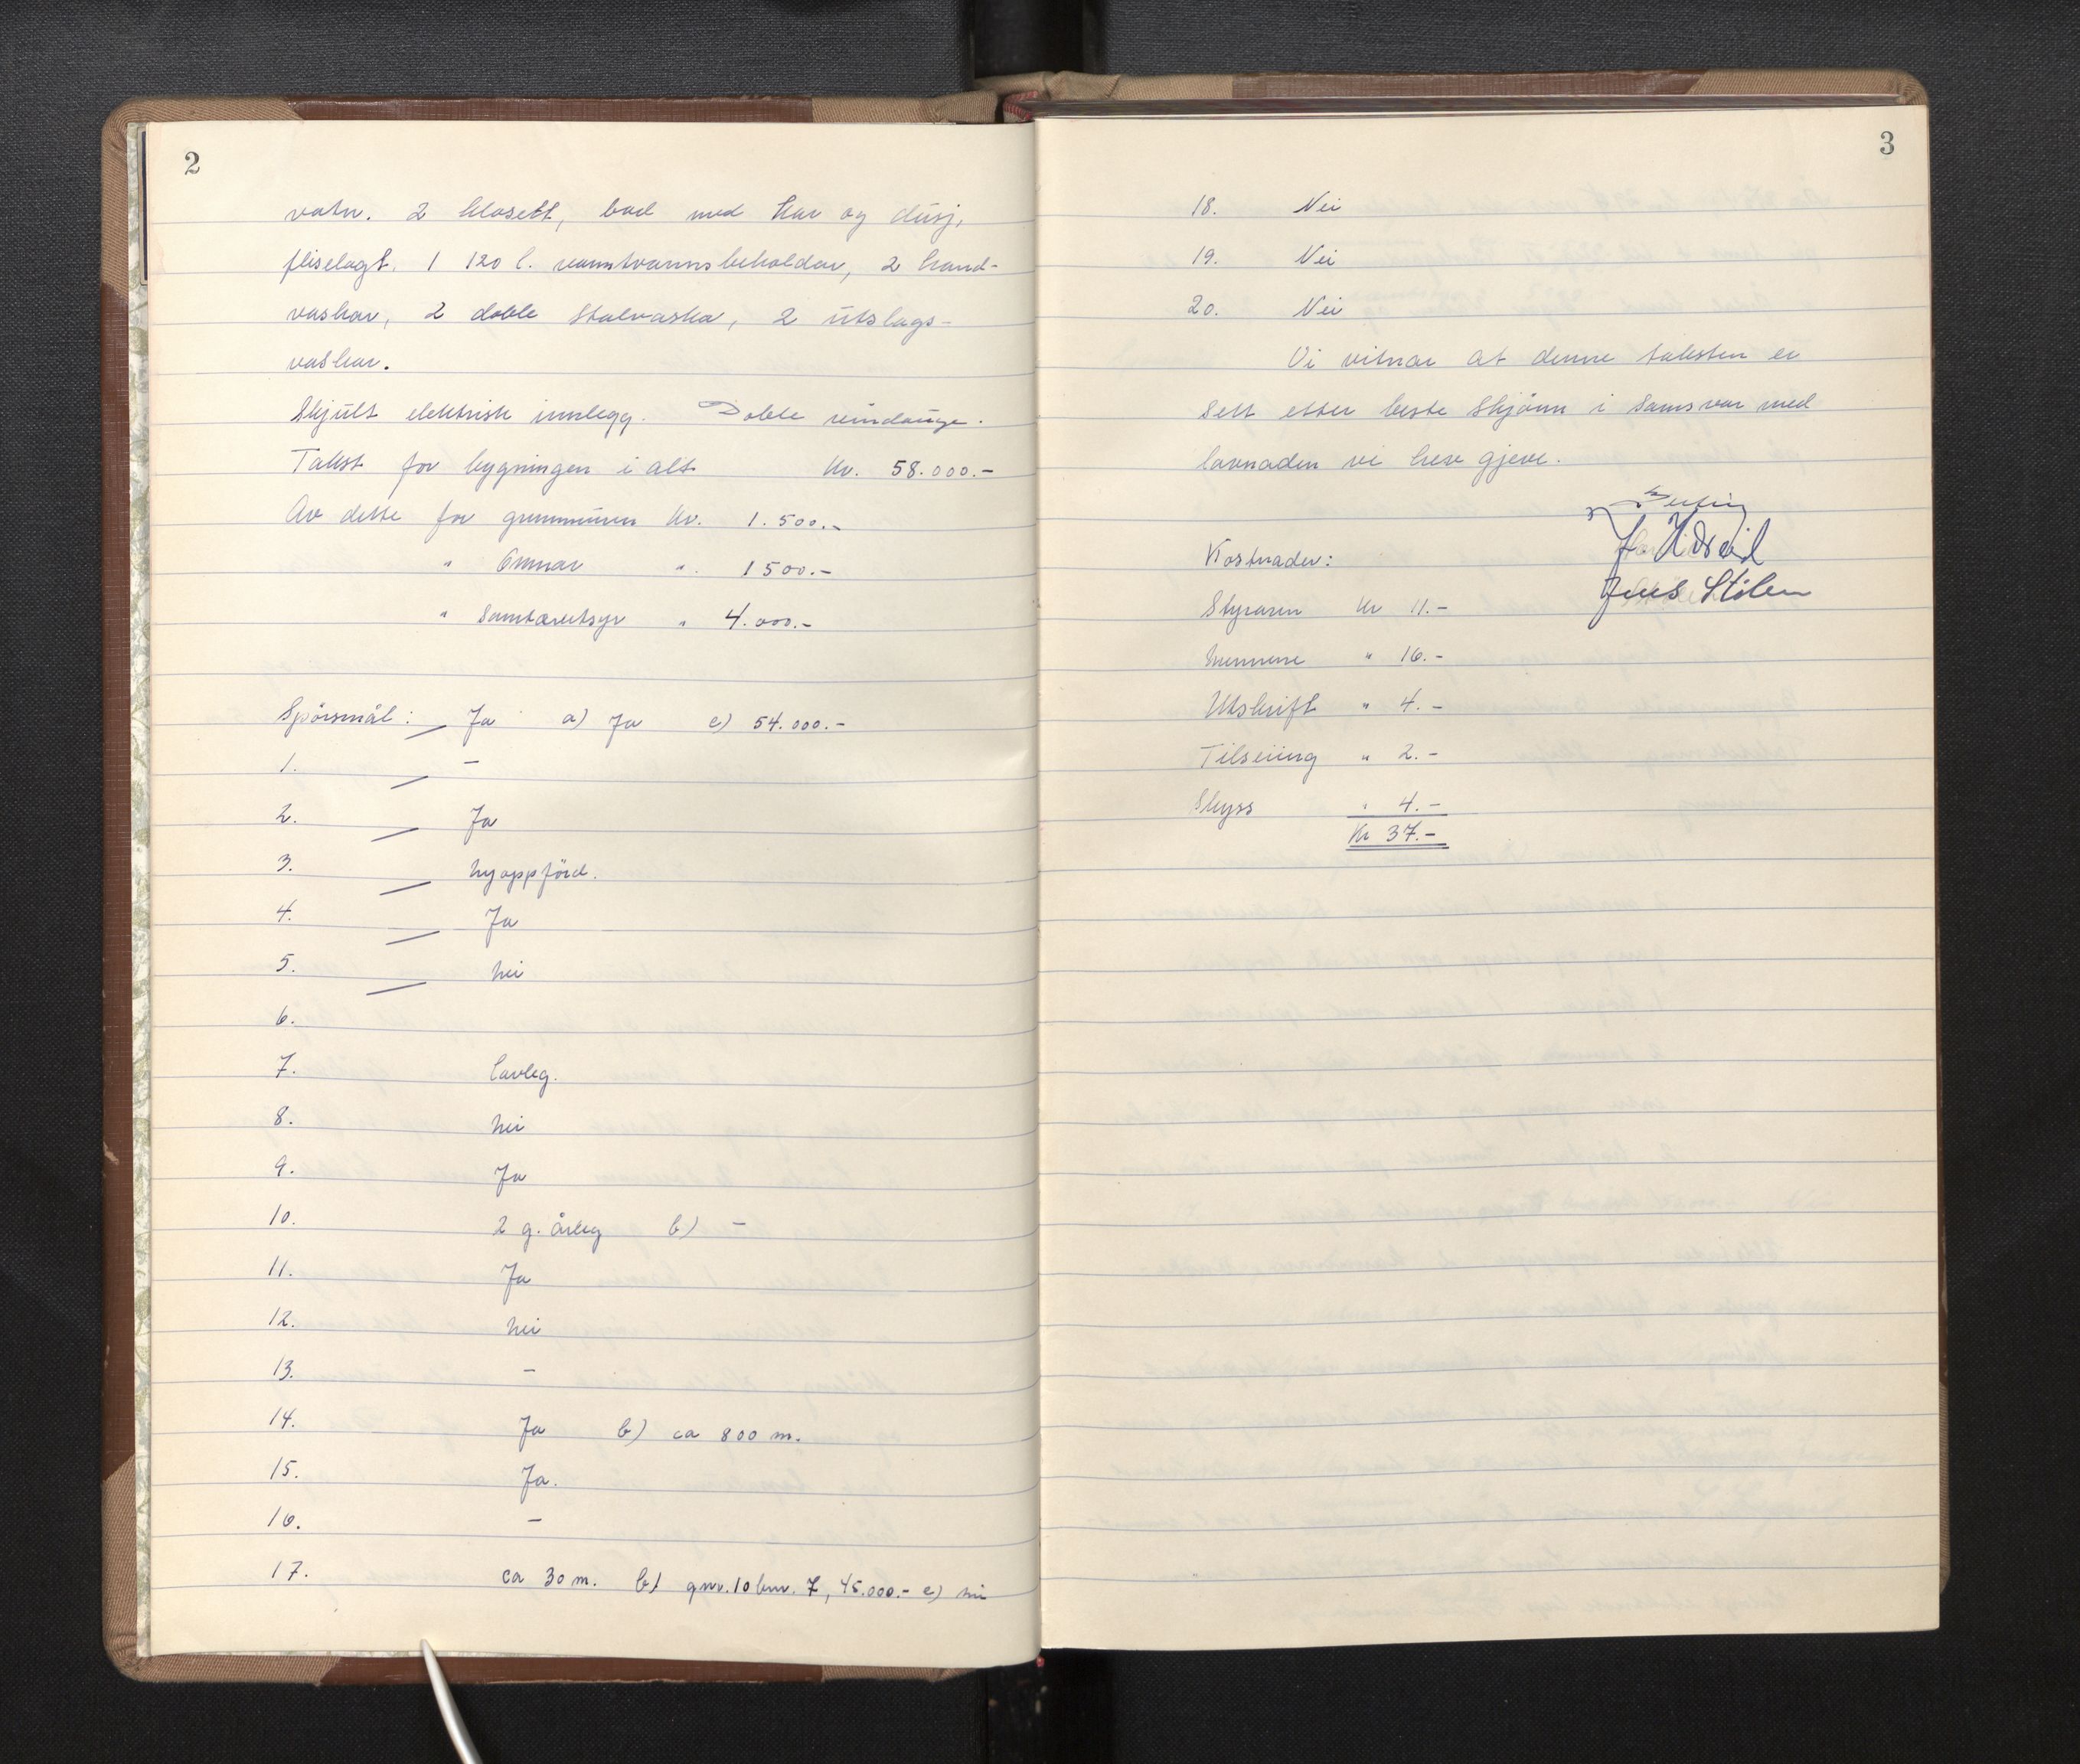 2
vatn. 2 klosett, bad med kar og dusj,
fliselagt. 1 120 l. varmtvannsbeholdar, 2 hand-
vaskar, 2 doble stålvaska, 2 utslags-
vaskar.
Skjult elektrisk innlegg. Doble vindauge.
Takst for bygningen i alt kr. 58.000.-
Av dette for grunnmuren kr. 1.500.-
" Omnar " 1500.-
" Sanitærutsyr " 4.000.-
Spörsmål: Ja a) Ja c) 54.000.-
1. -
2. Ja
3. Nyoppförd.
4. Ja
5. Nei
6.
7. Lovleg.
8. Nei
9. Ja
10. 2 g. årleg b) -
11. Ja
12. Nei
13. -
14. Ja b) ca 800 m.
15. Ja.
16. -
17. ca 30 m. b) gnr. 10 bnr. 7, 45.000.- c) nei
3
18. Nei
19. Nei
20. Nei
Vi vitnar at denne taksten er
sett etter beste skjönn i samsvar med
lovnaden vi hev gjeve.
Kostnader:
Jens Stölen
Styraren kr 11.-
Mennene " 16.-
Utskrift " 4.-
Tilseiing " 2.-
Skyss " 4.-
Kr 37.-